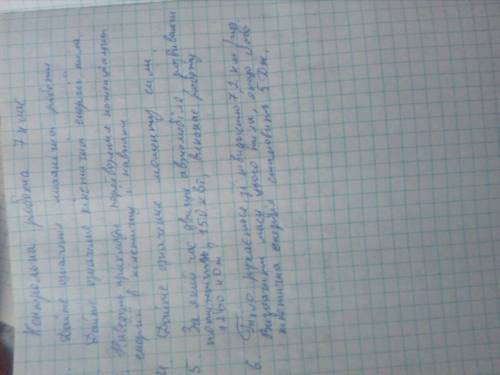 Контрольна робота 7 клас
. Дайте означення механічної роботи
. Дайте означення кінетичної енергії тіла
. Наведіть приклади перетворення потенціальної
енергії в кінетичну і навпаки
4 Дайте означення моменту сили.
5. За який час двигун автомобіля, розвиваючи
потужність 150 кВт, виконає роботу
кДж
6. Тіло рухається зі швидкістю 7,2 км/год.
Визначити масу цього тіла, якщо його
кінетична енергія становить 5 Дж.